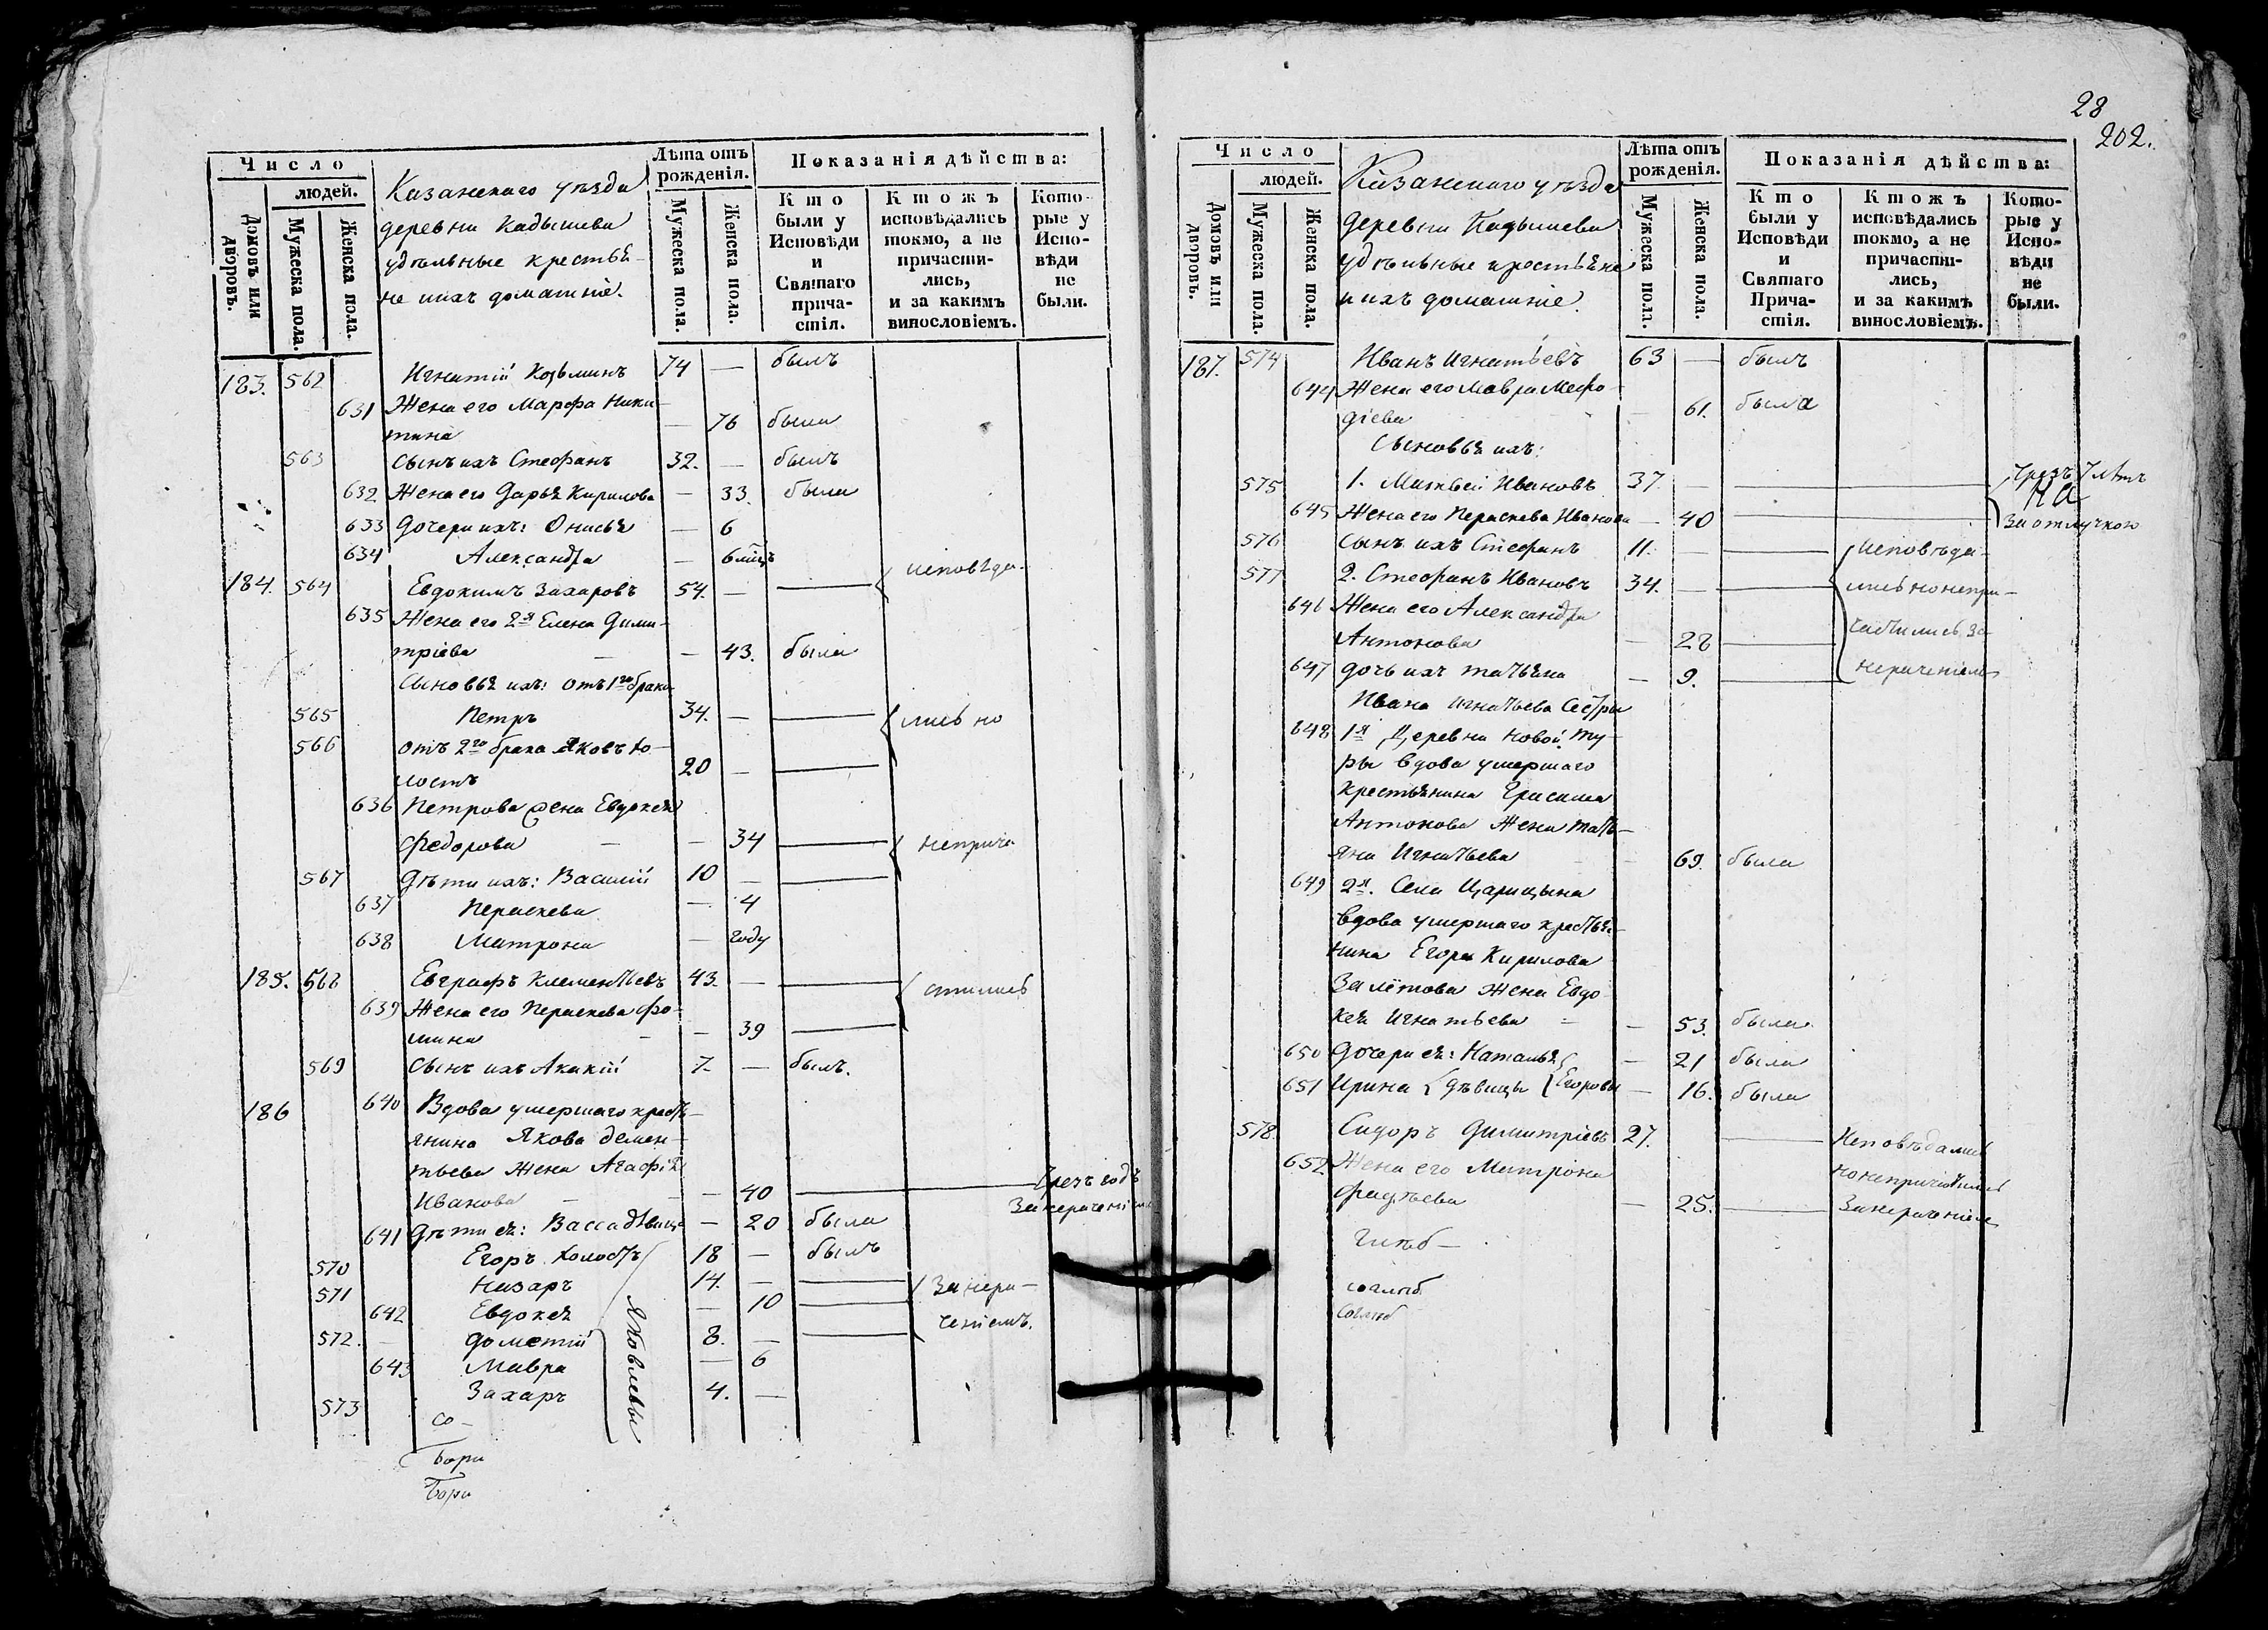 Число
людей.
Домовъ или дворовъ.
Мужеска пола.
Женска пола.
Казанскаго уѣзда
деревни Кадышева
удѣльные крестья-
не и ихъ домашніе.
Лѣта отъ рожденія.
Мужеска пола.
Женска пола.
Показанія дѣйства:
Кто были у Исповѣди и Святаго причастія.
Ктожъ исповѣдались токмо, а не причастились, и за какимъ винословіемъ.
Которые у Исповѣди не были.
183. 562 Игнатій Козьминъ 74 — былъ
631 Жена его Марфа Ники-
тина — 76 была
563 Сынъ ихъ Стефанъ 32. — былъ
632 Жена его Дарья Кирилова — 33. была
633 Дочери ихъ: Онисья — 6
634 Александра — 6 мѣцъ
184. 564 Евдокимъ Захаровъ 54. — — исповѣда-
635 Жена его 2я Елена Дими-
тріева — 43. была
Сыновья ихъ: отъ 1го брака
565 Петръ 34. — — лись но
566 отъ 2го брака Яковъ хо-
лостъ 20 — —
636 Петрова жена Евдокея
Федорова — 34 — неприча-
567 Дѣти ихъ: Василій 10 — —
637 Параскева — 4
638 Матрона — году
185. 568 Евграфъ Клементьевъ 43. — — стились
639 Жена его Параскева Фо-
мина — 39 —
569 Сынъ ихъ Акакій 7. — былъ.
186 640 Вдова умершаго кресть-
янина Якова Демен-
тьева жена Агафія
Иванова — 40 — Чрезъ годъ
За нераченіемъ
641 Дѣти ея: Васса дѣвица — 20 была
570 Егоръ холостъ 18 — былъ
571 Назаръ 14. — — За нера-
642 Евдокея — 10 —
572. Дометій 8. — — ченіемъ.
643 Мавра — 6
573 Захаръ 4. —
Яковлевы
Со-
бори
бори
28
202.
Число
людей.
Домовъ или дворовъ.
Мужеска пола.
Женска пола.
Казанскаго уѣзда
деревни Кадышева
удѣльные крестьяне
и ихъ домашніе.
Лѣта отъ рожденія.
Мужеска пола.
Женска пола.
Показанія дѣйства:
Кто были у Исповѣди и Святаго Причастія.
Ктожъ исповѣдались токмо, а не причастились, и за какимъ винословіемъ.
Которые у Исповѣди не были.
187. 574 Иванъ Игнатьевъ 63 — былъ
644 Жена его Мавра Мефо-
діева — 61. была
Сыновья ихъ:
575 1. Матвей Ивановъ 37. — — Чрезъ 7 лѣтъ
645 Жена его Параскева Иванова — 40 — За отлучкою
576 Сынъ ихъ Стефанъ 11. — — Исповѣда-
577 2. Стефанъ Ивановъ 34. — — лись но непри-
646 Жена его Александра
Антонова — 28 — частились за
647 Дочь ихъ Татьяна — 9. — нераченіемъ
Ивана Игнатьева Сестры
648 1я Деревни Новой Ту-
ры вдова умершаго
крестьянина Герасима
Антонова жена Тать-
яна Игнатьева — 69. была
649 2я. Села Царицына
вдова умершаго крестья-
нина Егора Кирилова
Залётова жена Евдо-
кея Игнатьева — 53. была
650 Дочери ея: Наталья — 21 была
651 Ирина дѣвицы Егоровы — 16. была
578. Сидоръ Димитріевъ 27. — Исповѣдались
652 Жена его Матрона но непричастились
Фадѣева — 25. — За нераченіемъ